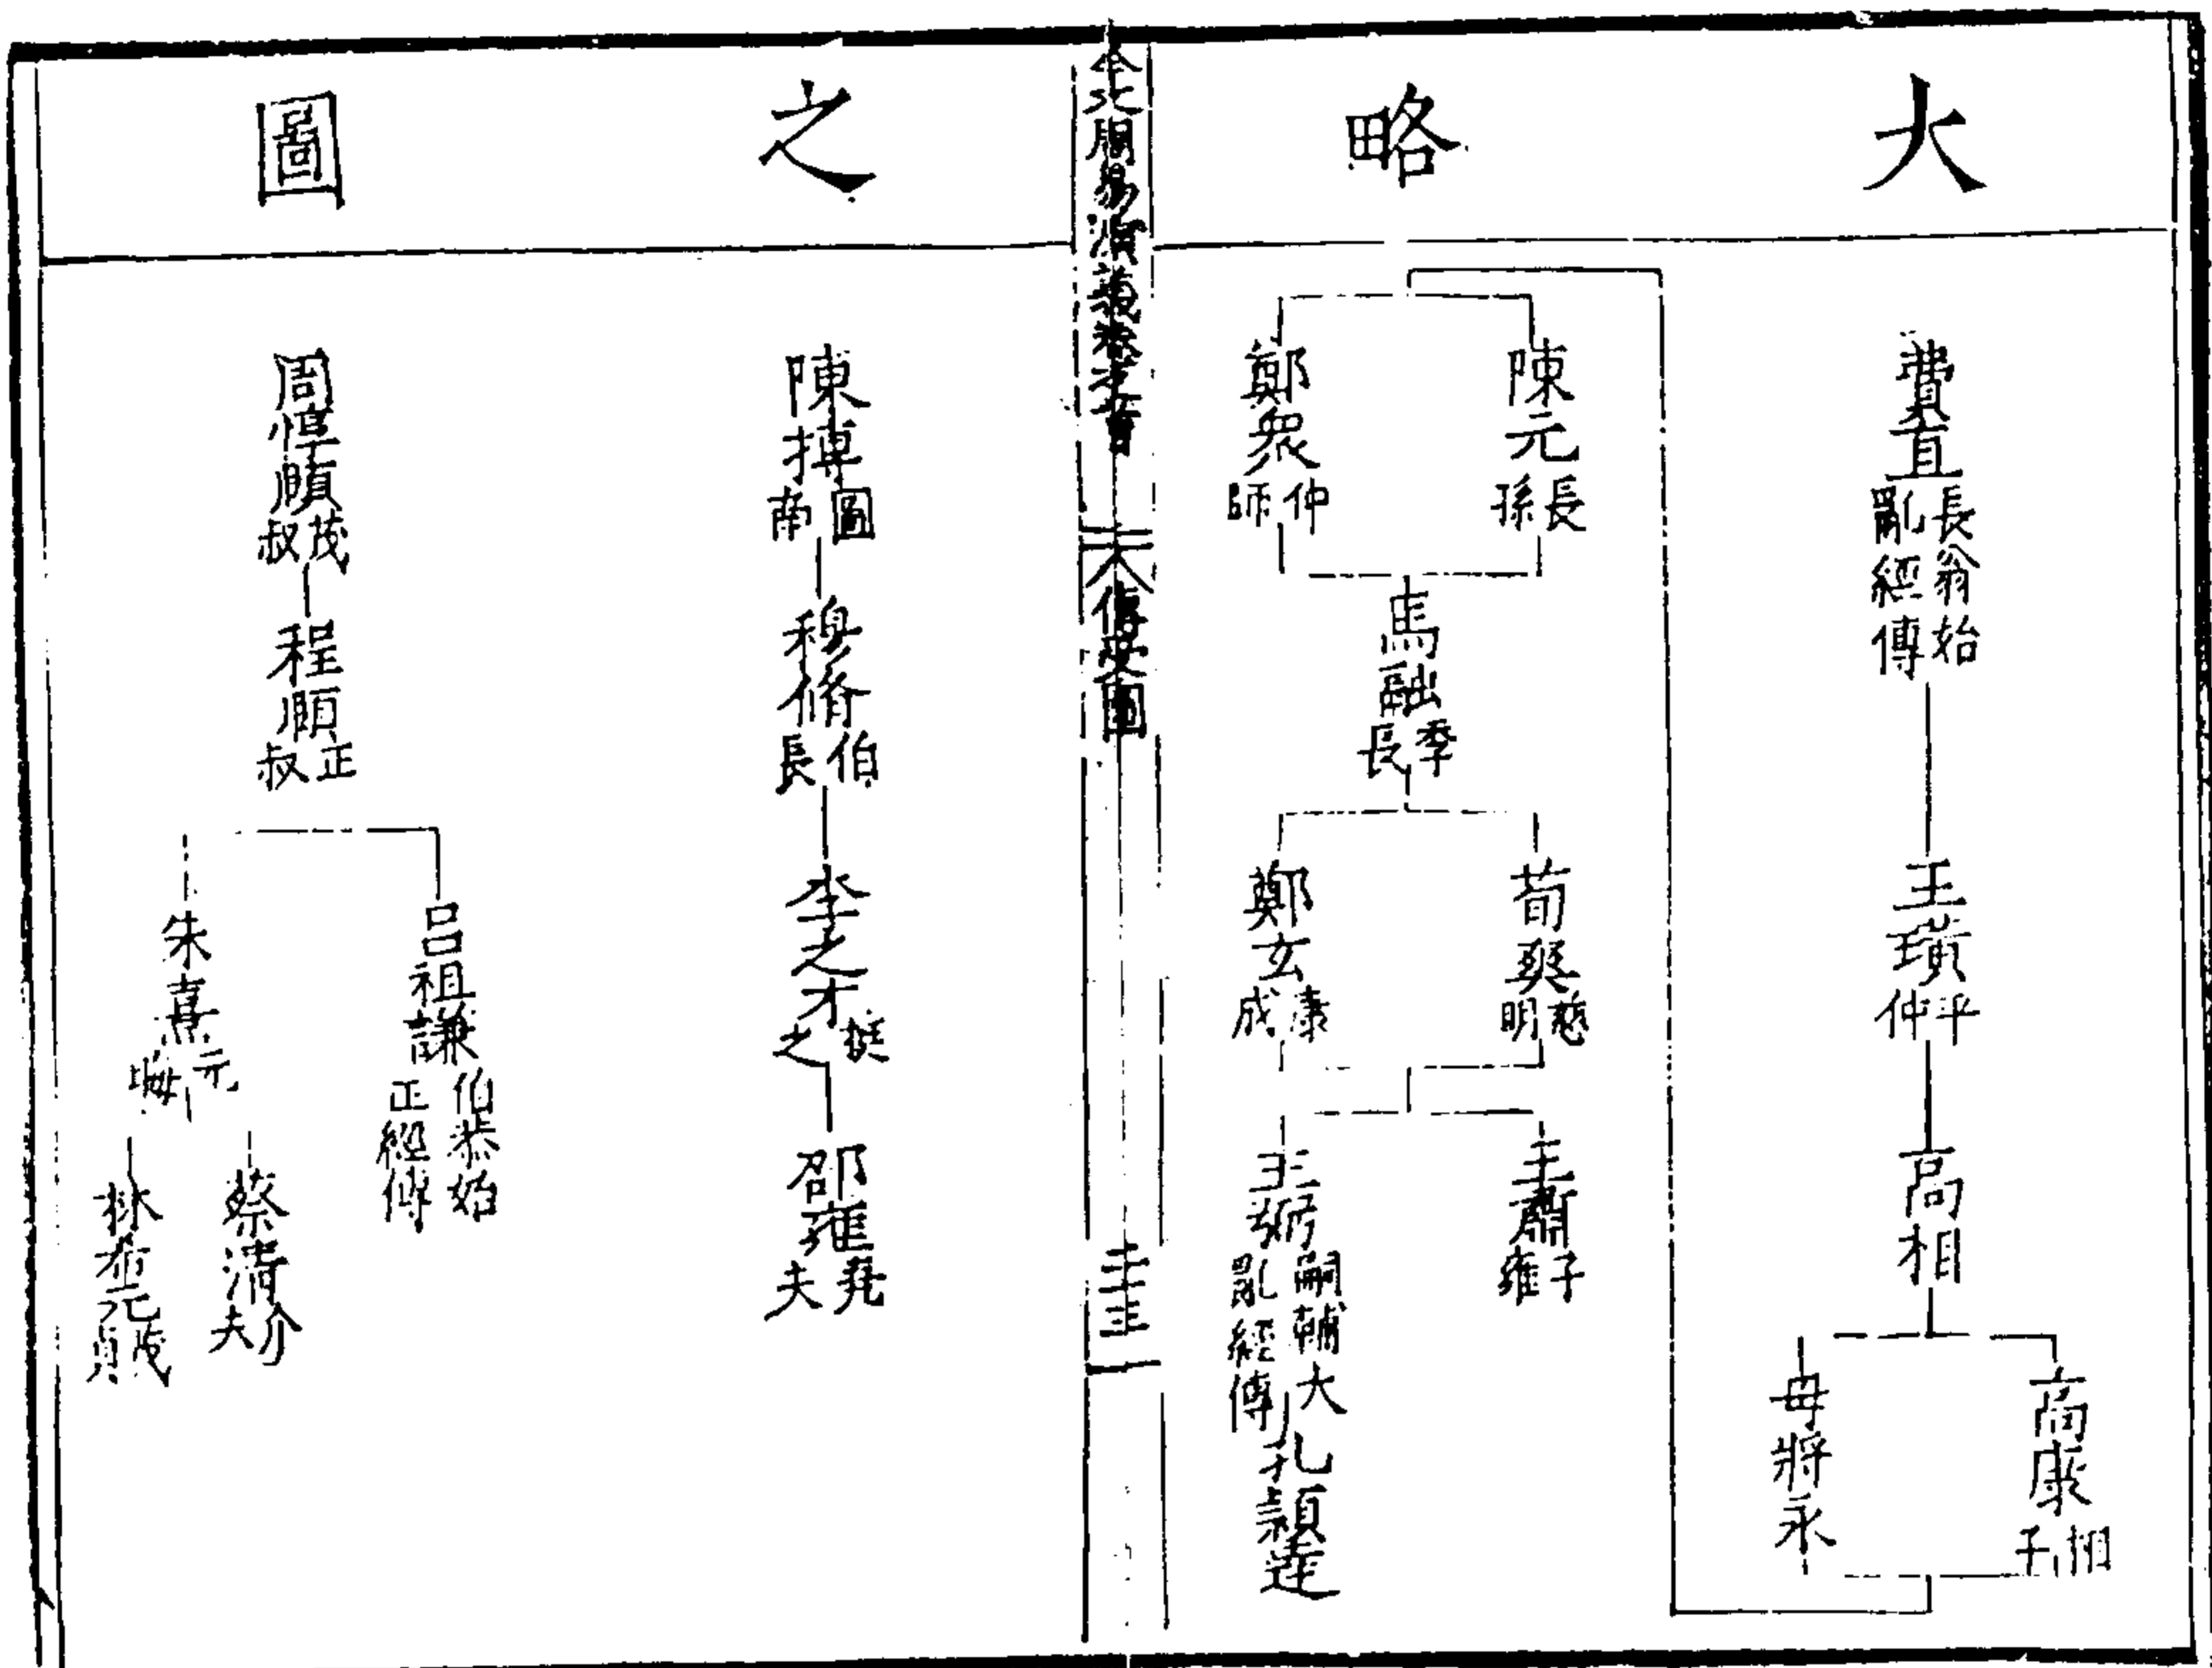 大略之圖
費直 長翁始亂經傳
王璜 平仲
高相
高康 相子
毋將永
陳元 長孫
鄭衆 仲師
馬融 季長
荀爽 慈明
鄭玄 康成
王肅 子雍
王弼 嗣輔大亂經傳
孔穎達
大傳受圖
陳摶 圖南
穆脩 伯長
李之才 挺之
邵雍 堯夫
周惇頤 茂叔
程頤 正叔
呂祖謙 伯恭始正經傳
朱熹 元晦
蔡清 介夫
林希元 茂貞